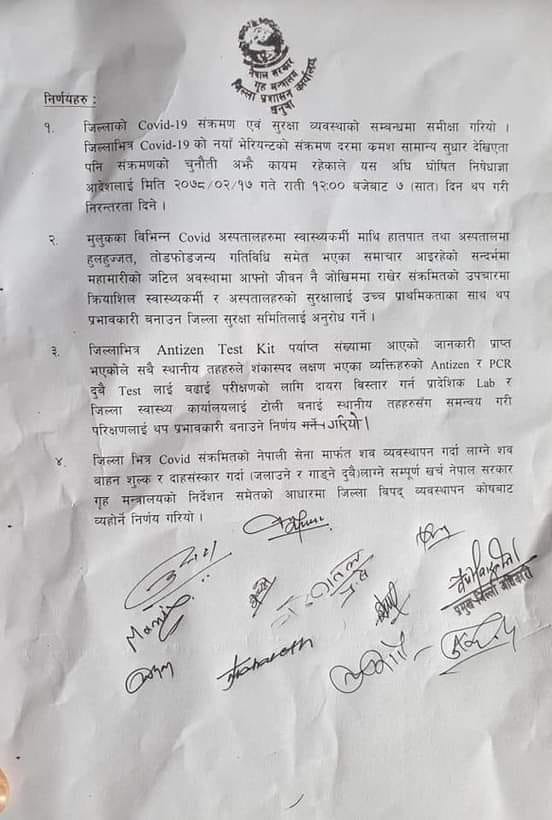 नेपाल सरकार
गृह मन्त्रालय
जिल्ला प्रशासन कार्यालय
धनुषा
निर्णयहरु :
१. जिल्लाको Covid-19 संक्रमण एवं सुरक्षा व्यवस्थाको सम्बन्धमा समीक्षा गरियो ।
जिल्लाभित्र Covid-19 को नयाँ भेरियन्टको संक्रमण दरमा कमश सामान्य सुधार देखिएता
पनि संक्रमणको चुनौती अझै कायम रहेकाले यस अघि घोषित निषेधाज्ञा
आदेशलाई मिति २०७८/०२/१७ गते राती १२:०० बजेबाट ७ (सात) दिन थप गरी
निरन्तरता दिने ।
२. मुलुकका विभिन्न Covid अस्पतालहरुमा स्वास्थ्यकर्मी माथि हातपात तथा अस्पतालमा
हुलहुज्जत, तोडफोडजन्य गतिविधि समेत भएका समाचार आइरहेको सन्दर्भमा
महामारीको जटिल अवस्थामा आफ्नो जीवन नै जोखिममा राखेर संक्रमितको उपचारमा
क्रियाशिल स्वास्थ्यकर्मी र अस्पतालहरुको सुरक्षालाई उच्च प्राथमिकताका साथ थप
प्रभावकारी बनाउन जिल्ला सुरक्षा समितिलाई अनुरोध गर्ने ।
३. जिल्लाभित्र Antizen Test Kit पर्याप्त संख्यामा आएको जानकारी प्राप्त
भएकोले सबै स्थानीय तहहरुले शंकास्पद लक्षण भएका व्यक्तिहरुको Antizen र PCR
दुबै Test लाई बढाई परीक्षणको लागि दायरा बिस्तार गर्न प्रादेशिक Lab र
जिल्ला स्वास्थ्य कार्यालयलाई टोली बनाई स्थानीय तहहरुसंग समन्वय गरी
परिक्षणलाई थप प्रभावकारी बनाउने निर्णय गर्ने गरियो।
४. जिल्ला भित्र Covid संक्रमितको नेपाली सेना मार्फत शव व्यवस्थापन गर्दा लाग्ने शव
बाहन शुल्क र दाहसंस्कार गर्दा (जलाउने र गाड्ने दुबै)लाग्ने सम्पूर्ण खर्च नेपाल सरकार
गृह मन्त्रालयको निर्देशन समेतको आधारमा जिल्ला विपद् व्यवस्थापन कोषबाट
व्यहोर्ने निर्णय गरियो ।
प्रमुख जिल्ला अधिकारी